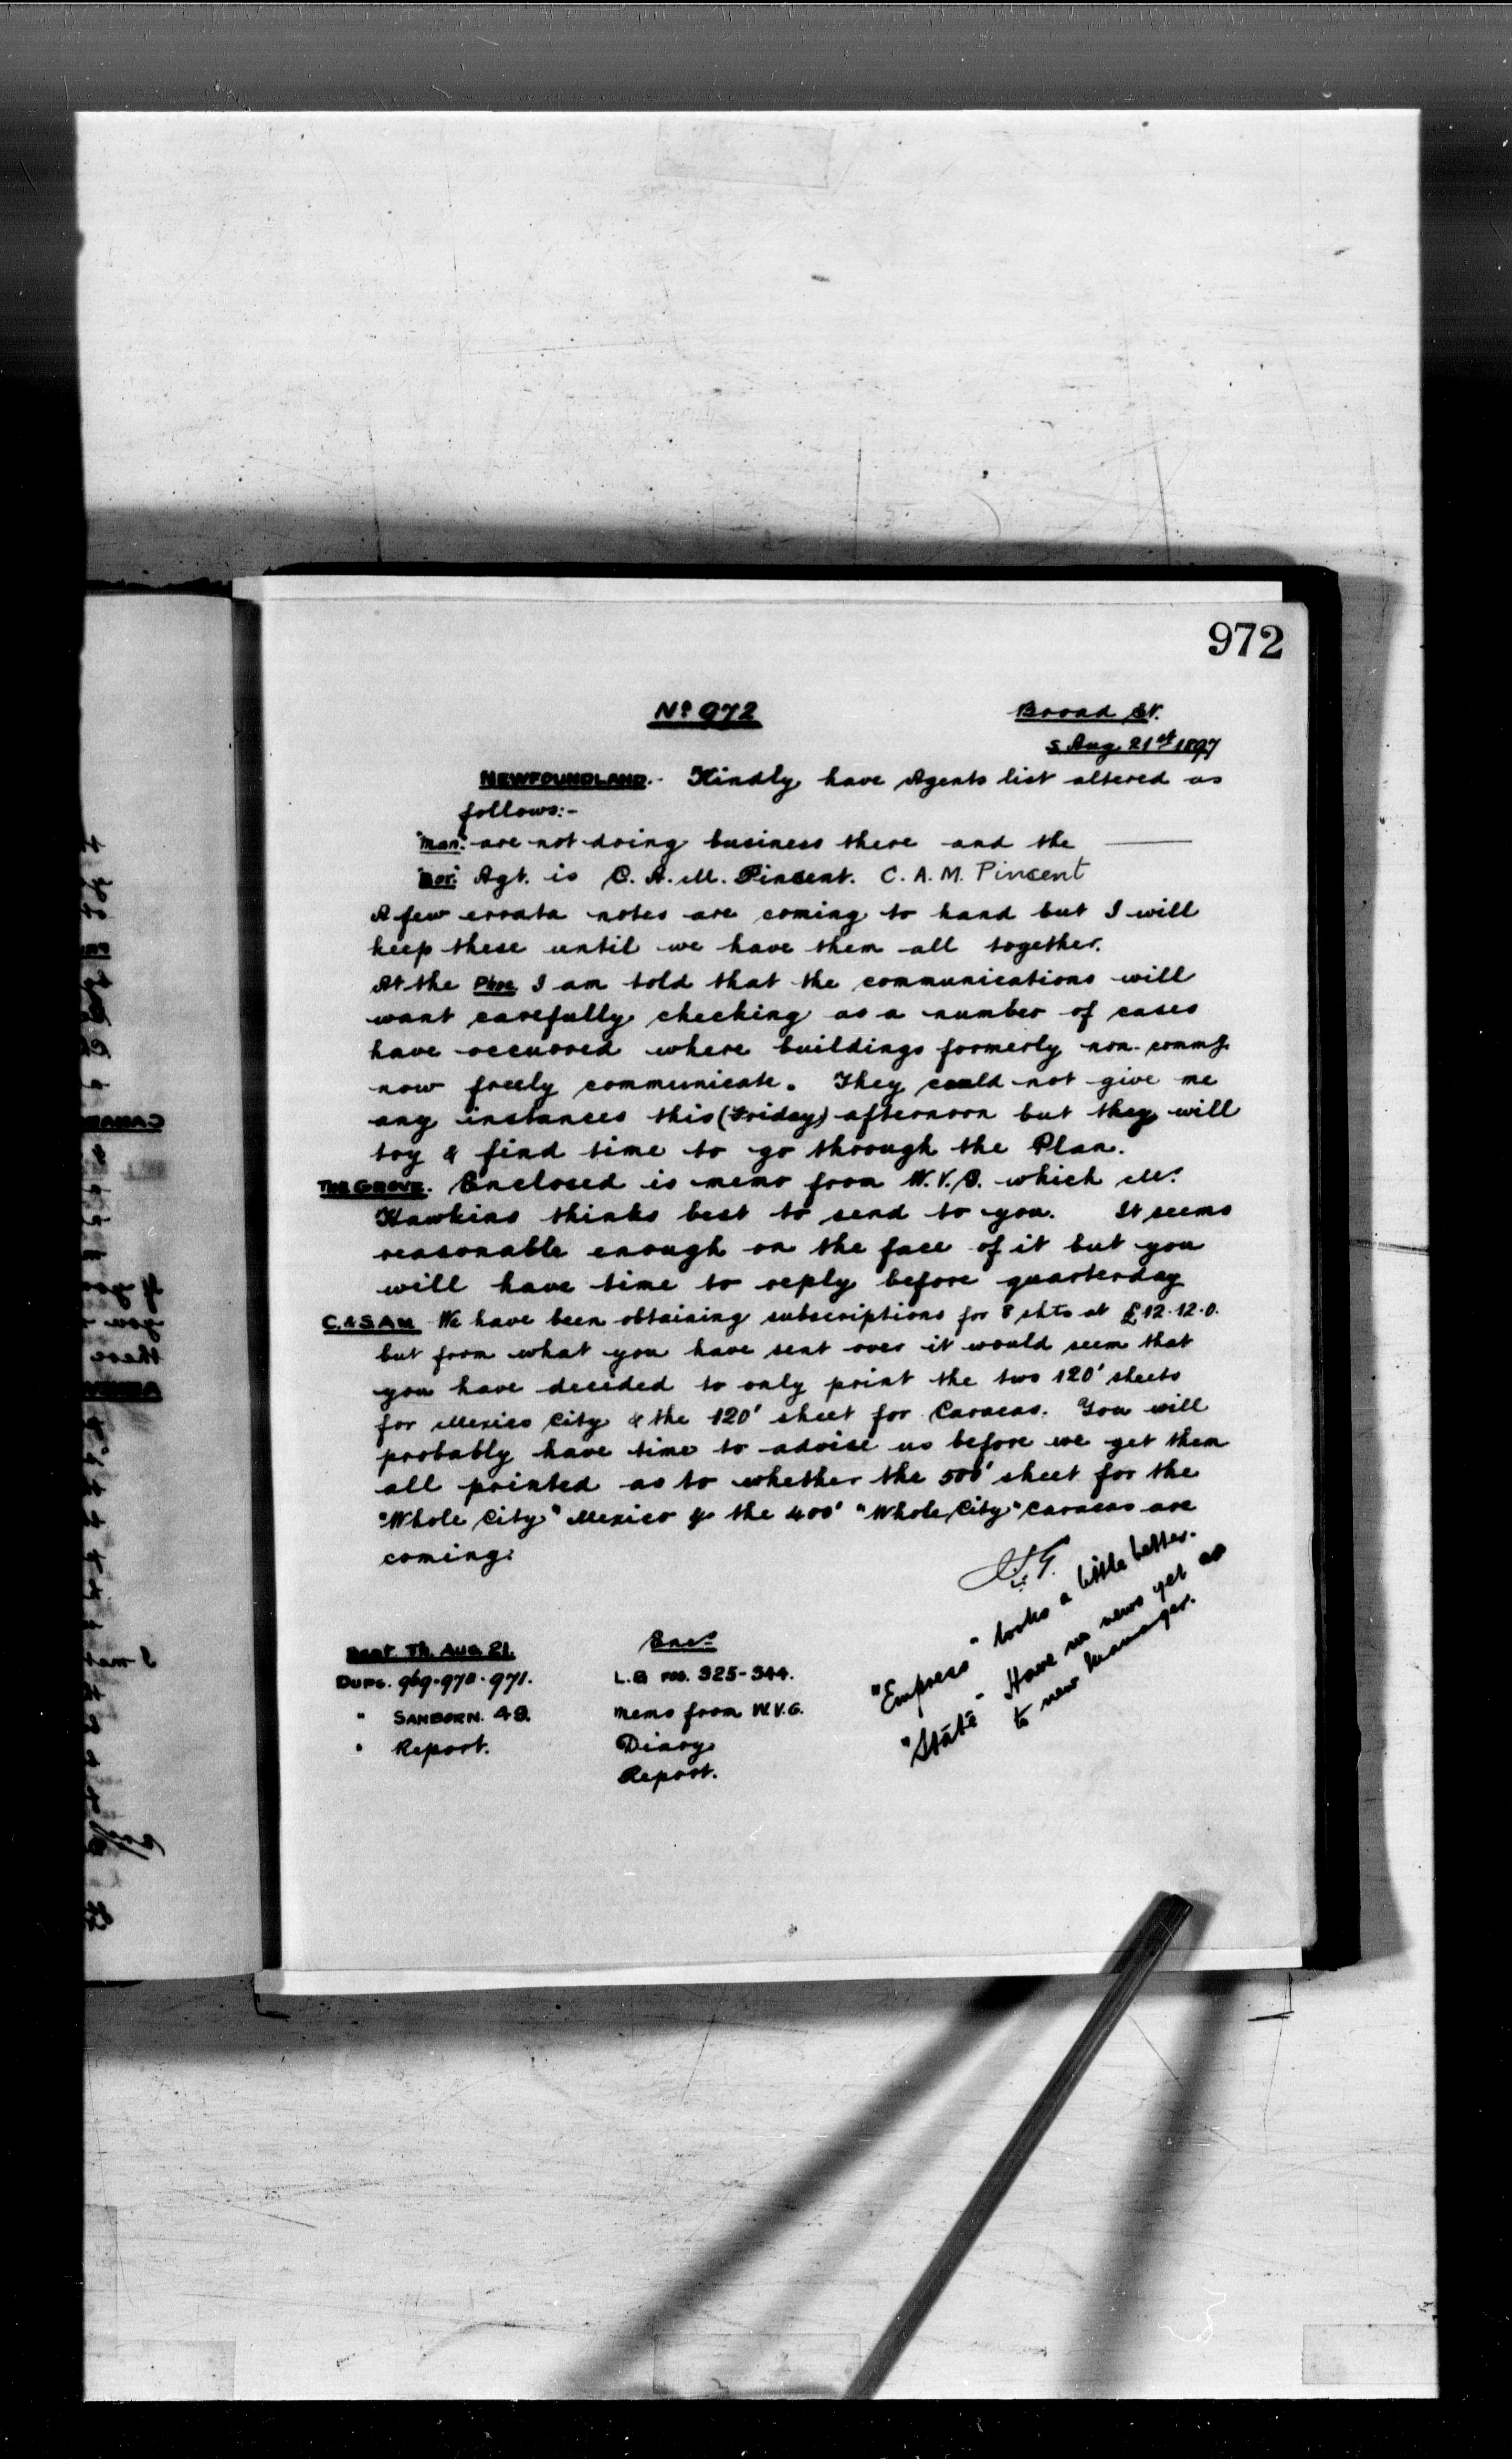 972
Nº 972
Broad St.
S Aug 21st 1897
NEWFOUNDLAND.- Kindly have Agents list altered as
follows:-
"Man." are not doing business there and the
"Nor." Agt. is C. A. M. Pincent. C. A. M. Pincent
A few errata notes are coming to hand but I will
keep these until we have them all together.
At the Phoe. I am told that the communications will
want carefully checking as a number of cases
have occurred where buildings formerly non-commg.
now freely communicate. They could not give me
any instances this (Friday) afternoon but they will
try & find time to go through the Plan.
THE GROVE. Enclosed is memo from W.V.G. which Mr.
Hawkins thinks best to send to you. It seems
reasonable enough on the face of it but you
will have time to reply before quarterday
C. & S. AM. We have been obtaining subscriptions for 8 shts at £12-12-0.
but from what you have sent over it would seem that
you have decided to only print the two 120' sheets
for Mexico City & the 120' sheet for Caracas. You will
probably have time to advise us before we get them
all printed as to whether the 500' sheet for the
"Whole City" Mexico & the 400' "Whole City" Caracas are
coming.
"Empress" looks a little better.
"State" Have no news yet as
to new manager.
Sent. Th. Aug. 21.
Dups. 969-970-971.
" SANBORN. 48.
" Report.
Encs.
L.B fos. 325-344.
Memo from W.V.G.
Diary
Report.